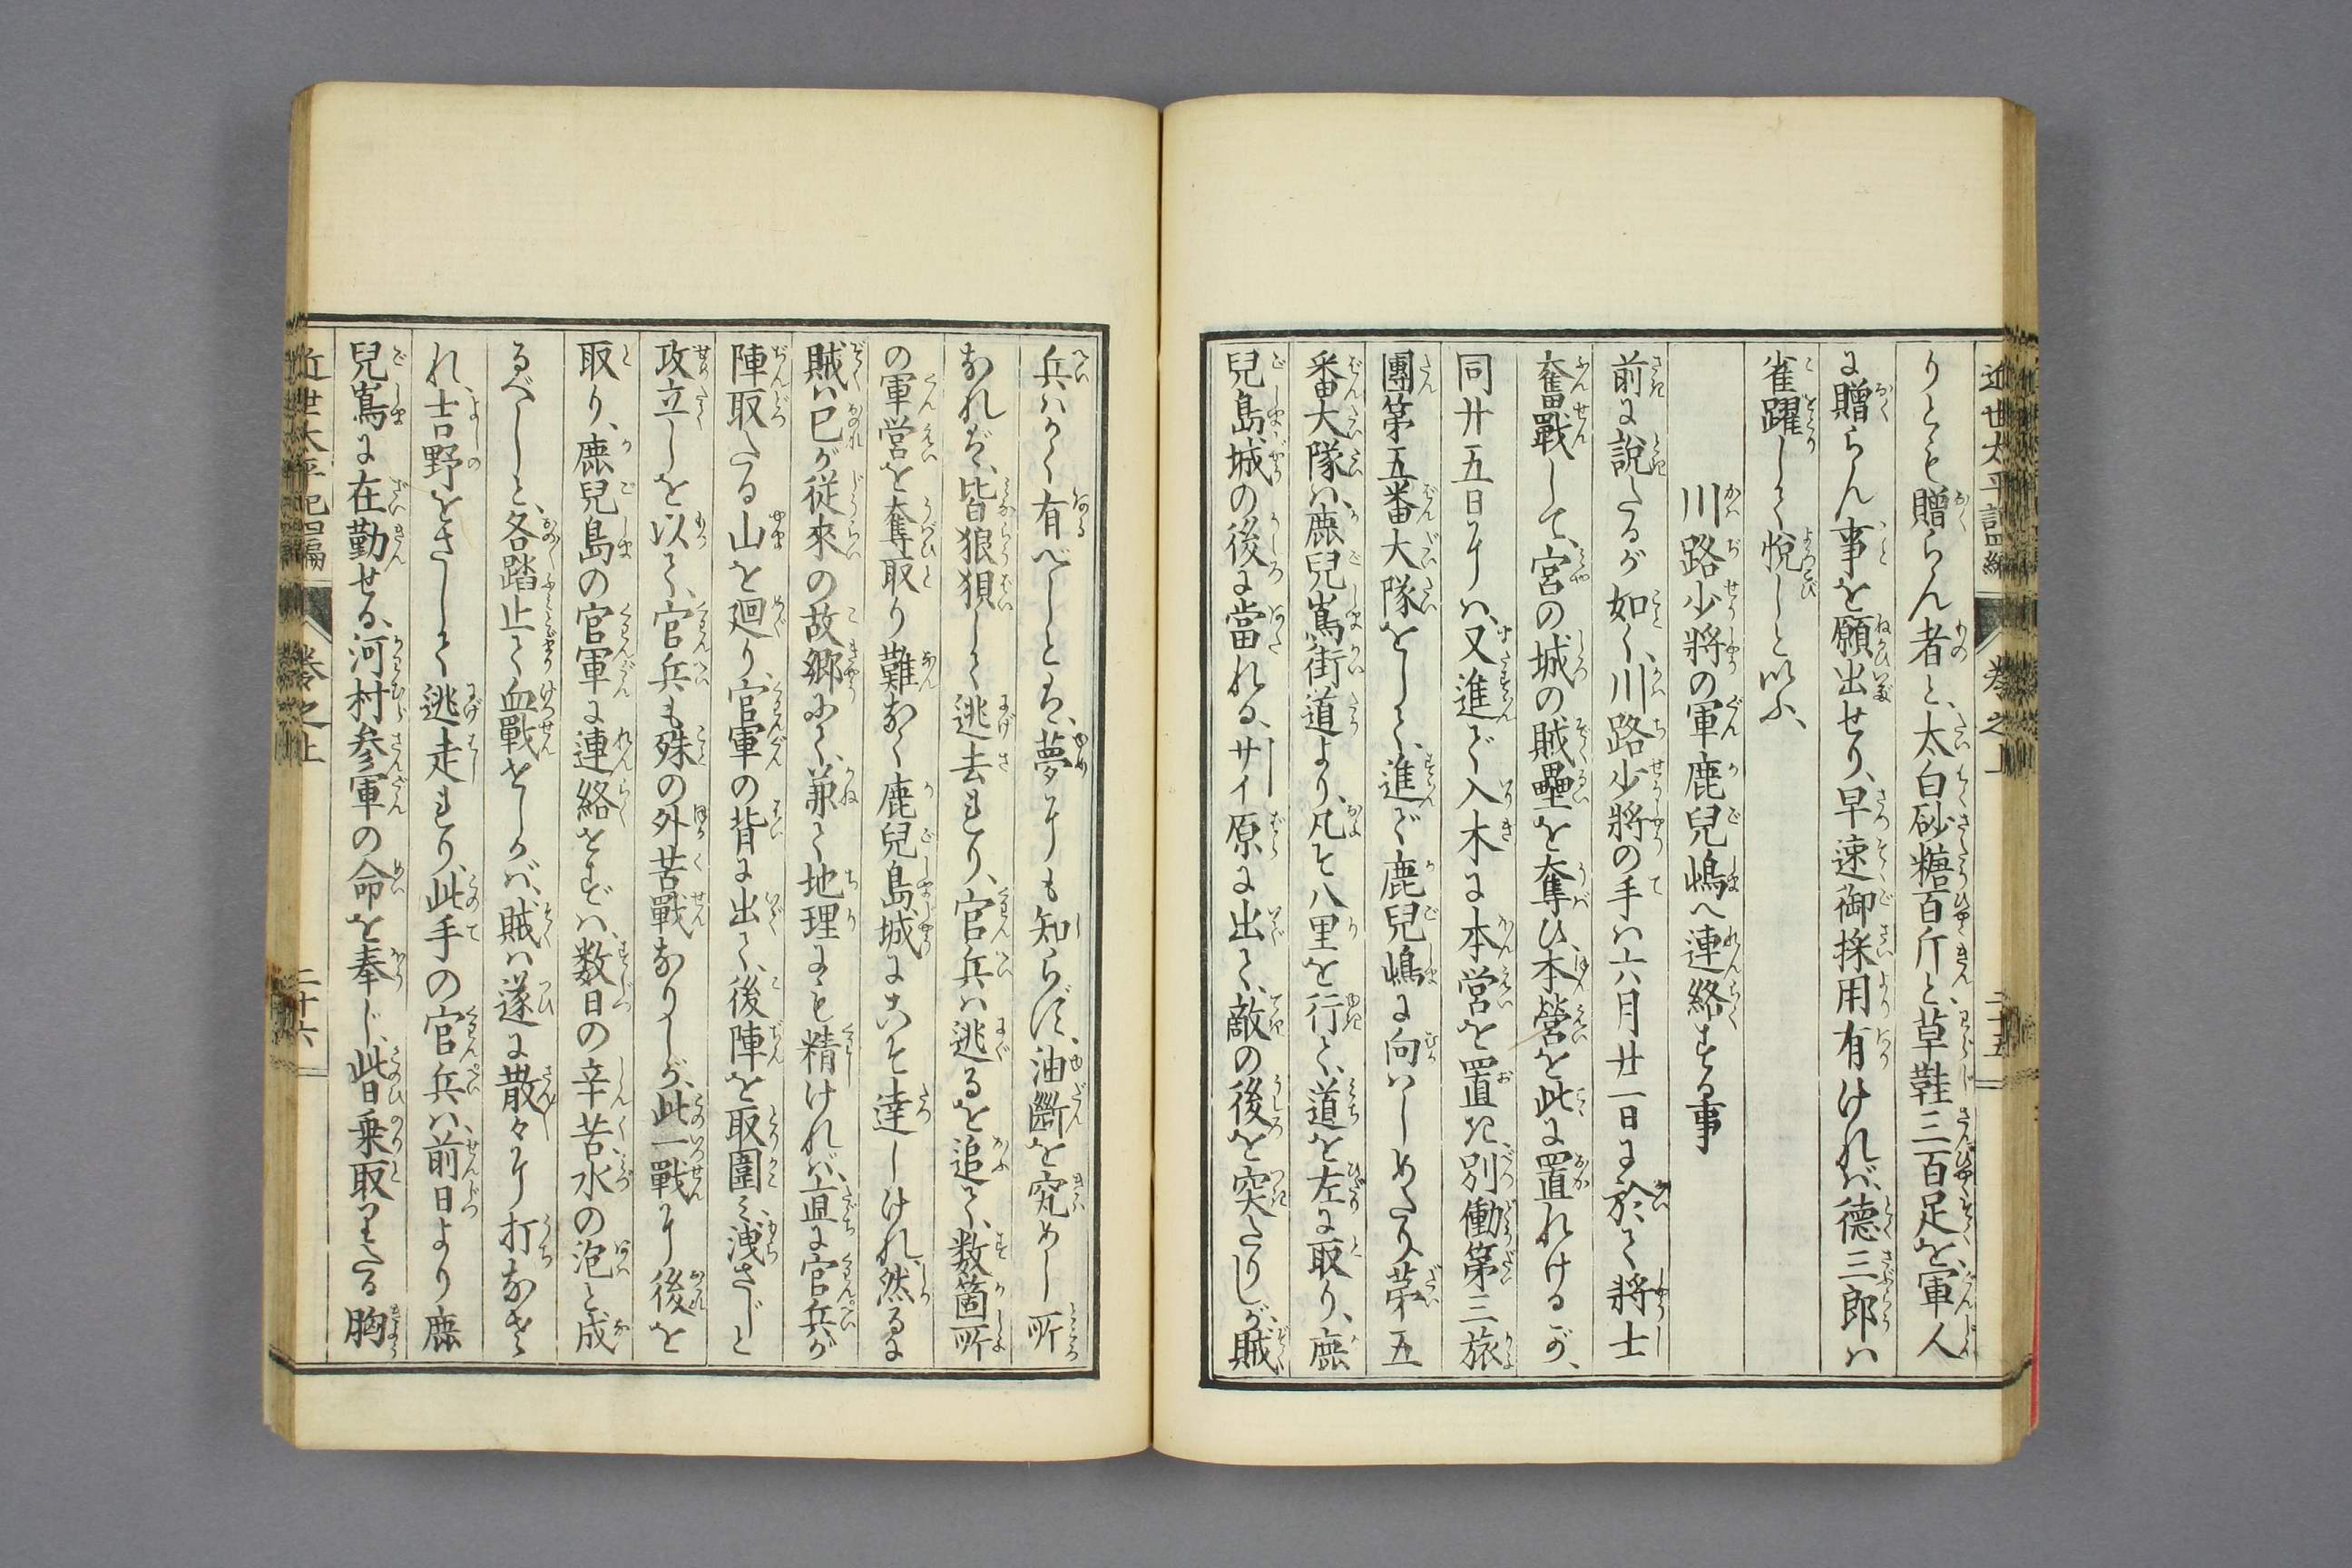 近世太平記四編　巻之上　二十五
りとも贈らん者と、太白砂糖百斤と、草鞋三百足を、軍人
に贈らん事を願出せり、早速御採用有ければ、徳三郎は
雀躍して悦しと以ふ、
川路少将の軍鹿児嶋へ連絡する事
前に説たるが如く、川路少将の手は六月廿一日に於て将士
奮戰して、宮の城の賊壘を奪ひ、本營を此に置れけるが、
同廿五日には、又進で入木に本営を置き、別働第三旅
團第五番大隊をして、進で鹿兒嶋に向はしめたり、第五
番大隊は、鹿兒嶌街道より、凡そ八里を行て、道を左に取り、鹿
兒島城の後に當れる、サイ原に出て、敵の後を突たりしが、賊
兵はかく有べしとは、夢にも知らず、油斷を究めし所
なれば、皆狼狽して逃去もり、官兵は逃るを追て、数箇所
の軍営を奪取り難なく鹿兒島城にこそ達しけれ、然るに
賊は已が従來の故郷にて、兼て地理にも精けれバ、直に官兵が
陣取たる山を廻り、官軍の背に出て、後陣を取圍み、洩さじと
攻立しを以て、官兵も殊の外苦戰なりしが、此一戰に後を
取り、鹿兒島の官軍に連絡をせずば、数日の辛苦、水の泡と成
るべしと、各踏止て血戰をしかば、賊は遂に散々に打なさ
れ、吉野をさして逃走もり、此手の官兵は、前日より鹿
兒嶌に在勤せる、河村参軍の命を奉じ、此日乗取りたる胸
近世太平記四編　巻之上　二十六